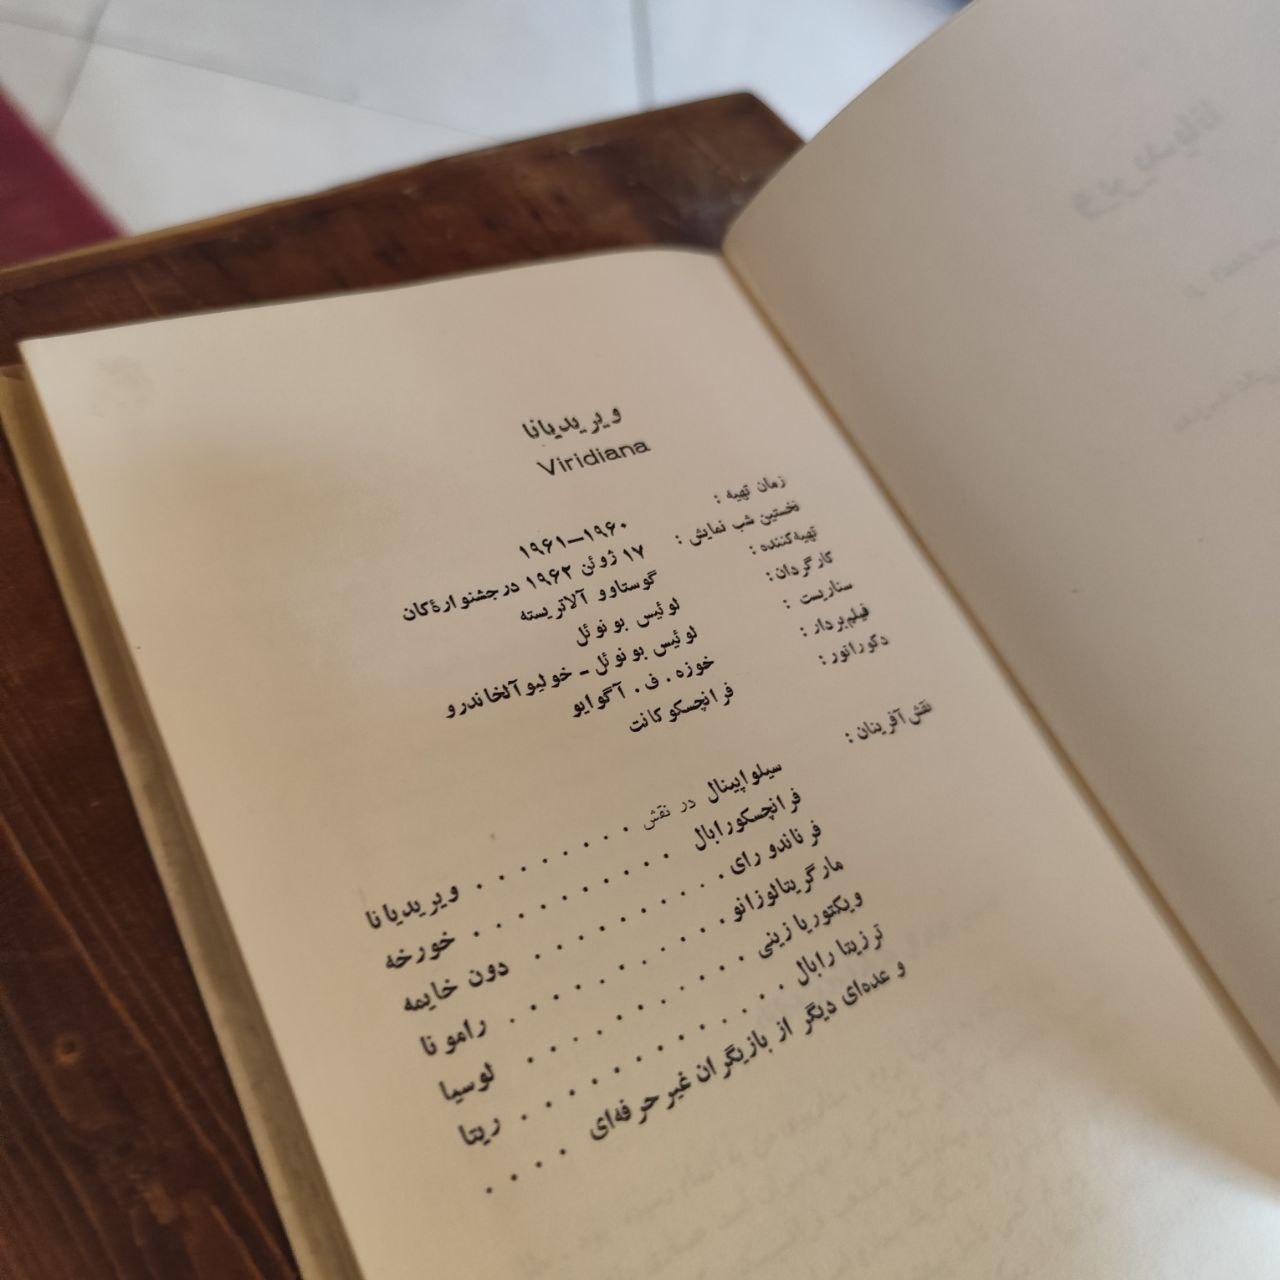 ویریدیانا
Viridiana
زمان تهیه : ۱۹۶۰–۱۹۶۱
نخستین شب نمایش : ۱۷ ژوئن ۱۹۶۲ در جشنوارهٔ کان
تهیه‌کننده : گوستاوو آلاتریسته
کارگردان : لوئیس بونوئل
سناریست : لوئیس بونوئل - خولیو آلخاندرو
فیلمبردار : خوزه . ف . آگوایو
دکوراتور : فرانچسکو کانت
نقش‌آفرینان :
سیلواپینال در نقش . . . . . . . . ویریدیانا
فرانچسکورابال . . . . . . . . . . خورخه
فرناندو رای . . . . . . . . . . دون خایمه
مارگریتالوزانو . . . . . . . . . . رامونا
ویکتوریا زینی . . . . . . . . . . لوسیا
ترزیتا رابال . . . . . . . . . . . . ریتا
و عده‌ای دیگر از بازیگران غیرحرفه‌ای . . . .